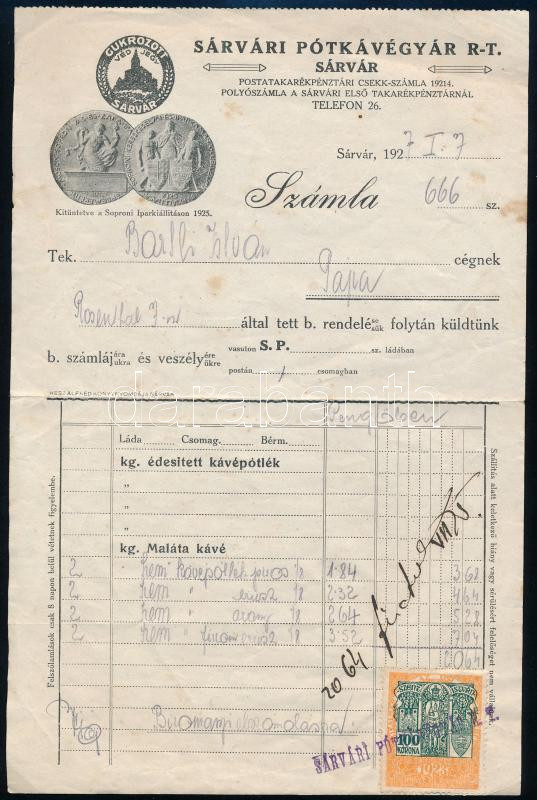 CUKROZOTT
VÉDJEGY
SÁRVÁR
SÁRVÁRI PÓTKÁVÉGYÁR R-T.
SÁRVÁR
POSTATAKARÉKPÉNZTÁRI CSEKK-SZÁMLA 19214.
POLYÓSZÁMLA A SÁRVÁRI ELSŐ TAKARÉKPÉNZTÁRNÁL
TELEFON 26.
Sárvár, 1927 I. 7
Kitüntetve a Soproni Iparkiállitáson 1925.
Számla 666 sz.
Tek. István cégnek
Pápa
által tett b. rendelése sük folytán küldtünk
b. számlájára ukra és veszélyére ükre
vasuton S. P. sz. ládában
postán 1 csomagban
HESZ ALFRÉD KÖNYVNYOMDÁJA SÁRVÁR
Pengőben
Láda Csomag. Bérm.
kg. édesitett kávépótlék
"
"
"
kg. Maláta kávé
2 kávépótlék piros 1/8 1.84 3 68
2 " 1/8 2.32 4 64
2 " arany 1/8 2.64 5 28
2 1/8 3.52 7 04
20 64
20 64
VII/5
Felszólamlások csak 8 napon belül vétetnek figyelembe.
Szállitás alatt keletkező hiány vagy sérülésért felelőséget nem vállalunk.
100
KORONA
SÁRVÁRI
darabanth